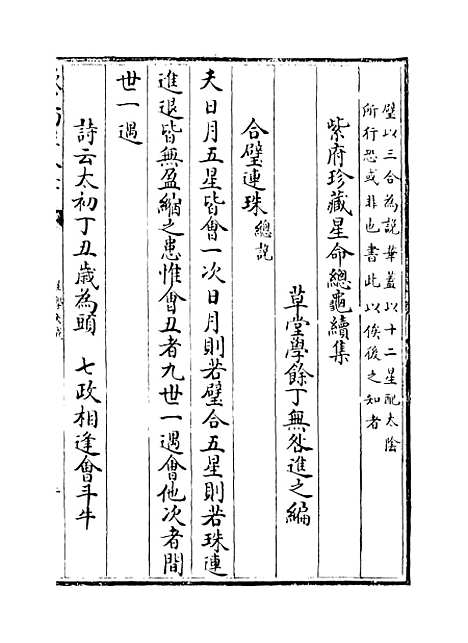 璧以三合為說華蓋以十二星配太陰
所行恐或非也書此以俟後之知者
紫府珍藏星命總龜續集
草堂學餘丁無咎進之編
合璧連珠總說
夫日月五星皆會一次日月則若璧合五星則若珠連
進退皆無盈縮之患惟會丑者九世一遇會他次者間
世一遇
詩云太初丁丑歲為頭　七政相逢會斗牛